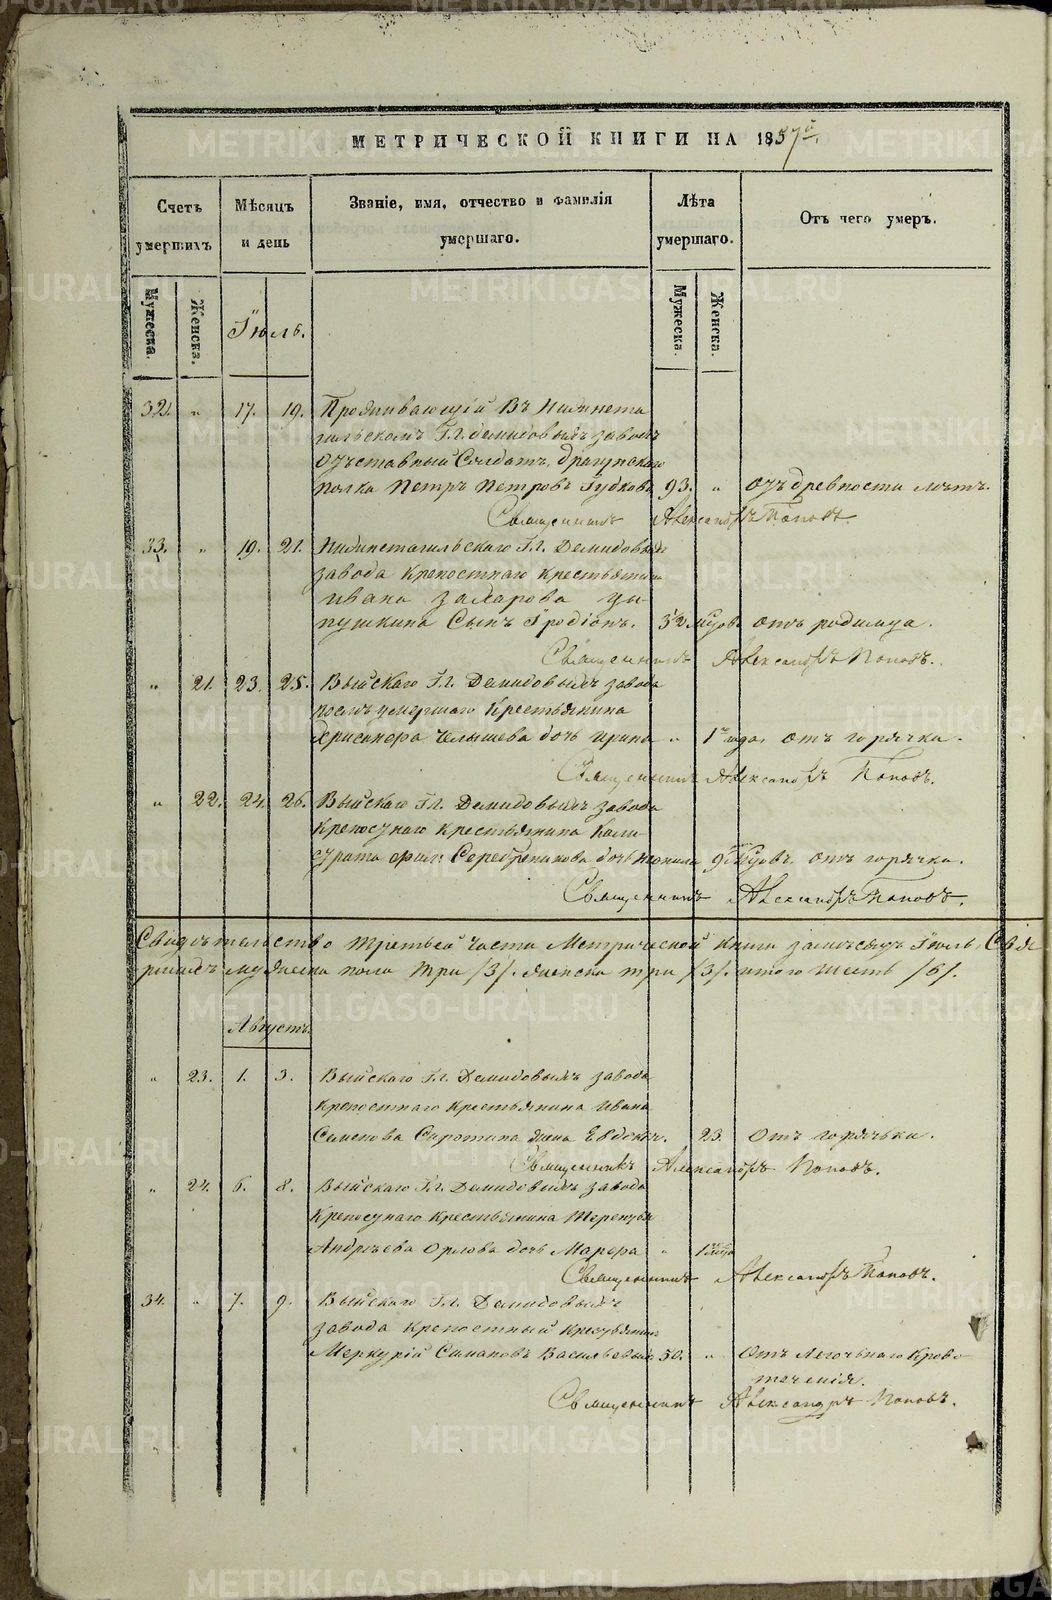 МЕТРИЧЕСКОЙ КНИГИ НА 1857й.
Счетъ умершихъ
Мѣсяцъ и день
Званіе, имя, отчество и фамилія умершаго.
Лѣта умершаго.
Отъ чего умеръ.
Мужеска. Женска.
Мужеска. Женска.
Іюль.
32. „ 17. 19. Проживающій Въ Нижнета
гильскомъ Г.г. Демидовыхъ заводѣ
Отъставный Солдатъ, драгунскаго
полка Петръ Петровъ Губковъ 93. „ Отъ древности лѣтъ.
Священникъ Александръ Поповъ.
33. „ 19. 21. Нижнетагильскаго Г.г. Демидовыхъ
завода крепостнаго крестьянина
Ивана Захарова Цы-
пушкина Сынъ Іродіонъ. 3½ мѣсц. отъ родимца.
Священникъ Александръ Поповъ.
„ 21. 23. 25. Выйскаго Г.г. Демидовыхъ завода
послѣ умершаго Крестьянина
Хрисанфа Челышева дочь Ирина „ 1го года, отъ горячки.
Священникъ Александръ Поповъ.
„ 22. 24. 26. Выйскаго Г.г. Демидовыхъ завода
крепостнаго крестьянина Кали
страта Серебреникова дочь 9 мѣсцовъ. отъ горячки.
Священникъ Александръ Поповъ.
Свидѣтельство третьей Части Метрической Книги замѣсяцъ Іюль,
мужеска пола три /3/. женска три /3/. итого шесть /6/.
Августъ.
„ 23. 1. 3. Выйскаго Г.г. Демидовыхъ завода
крепостнаго крестьянина Ивана
Семенова Сиротина жена 23. Отъ горячьки.
Священникъ Александръ Поповъ.
„ 24. 6. 8. Выйскаго Г.г. Демидовыхъ завода
Крепостнаго крестьянина Терентья
Андрѣева Орлова дочь Марфа „ 1го
Священникъ Александръ Поповъ.
34. „ 7. 9. Выйскаго Г.г. Демидовыхъ
завода крепостный Крестьянинъ
Меркурій Симановъ Васильевъ 50. „ Отъ Легочьнаго Крово
теченія.
Священникъ Александръ Поповъ.
METRIKI.GASO-URAL.RU